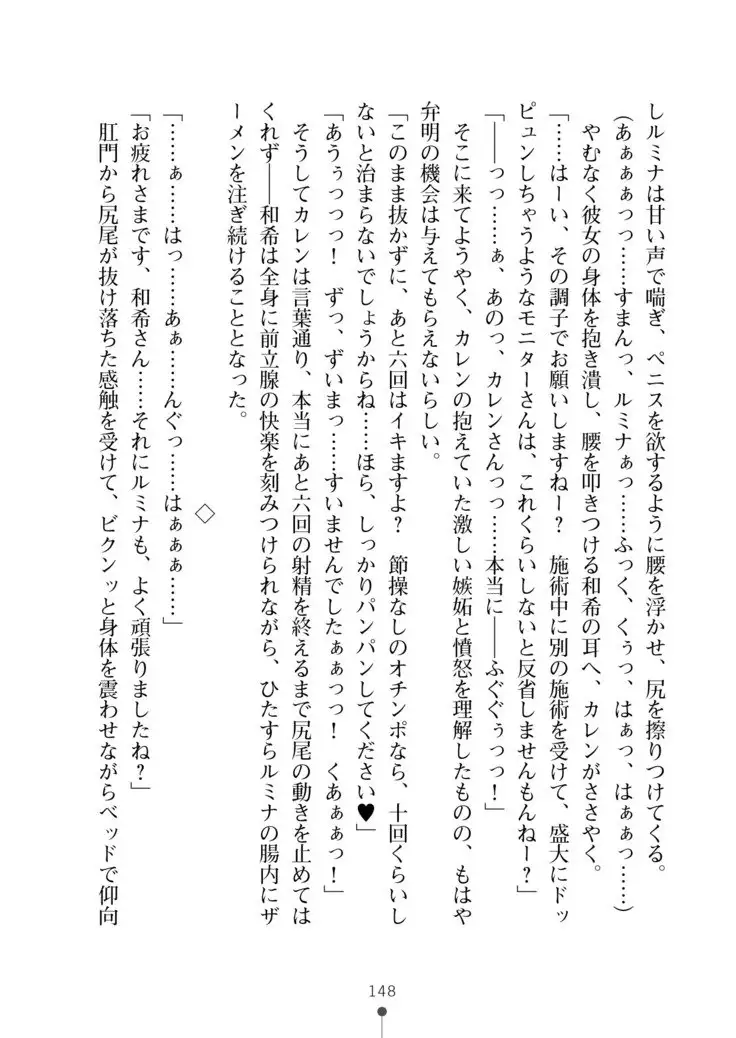 しルミナは甘い声で喘ぎ、ペニスを欲するように腰を浮かせ、尻を擦りつけてくる。
(あぁぁぁっっ……すまんっ、ルミナぁっ……ふっく、くぅっ、はぁっ、はぁぁっ……)
やむなく彼女の身体を抱き潰し、腰を叩きつける和希の耳へ、カレンがささやく。
「……はーい、その調子でお願いしますねー? 施術中に別の施術を受けて、盛大にドッ
ピュンしちゃうようなモニターさんは、これくらいしないと反省しませんもんねー?」
「――っっ……ぁ、あのっ、カレンさんっっ……本当に――ふぐぐぅっっ!」
そこに来てようやく、カレンの抱えていた激しい嫉妬と憤怒を理解したものの、もはや
弁明の機会は与えてもらえないらしい。
「このまま抜かずに、あと六回はイキますよ? 節操なしのオチンポなら、十回くらいし
ないと治まらないでしょうからね……ほら、しっかりパンパンしてください♥」
「あうぅっっっ! ずっ、ずいまっ……すいませんでしたぁぁっっ! くあぁぁっ!」
そうしてカレンは言葉通り、本当にあと六回の射精を終えるまで尻尾の動きを止めては
くれず――和希は全身に前立腺の快楽を刻みつけられながら、ひたすらルミナの腸内にザ
ーメンを注ぎ続けることとなった。
◇
「……ぁ……はっ……あぁ……んぐっ……はぁぁぁ……」
「お疲れさまです、和希さん……それにルミナも、よく頑張りましたね?」
肛門から尻尾が抜け落ちた感触を受けて、ビクンッと身体を震わせながらベッドで仰向
148